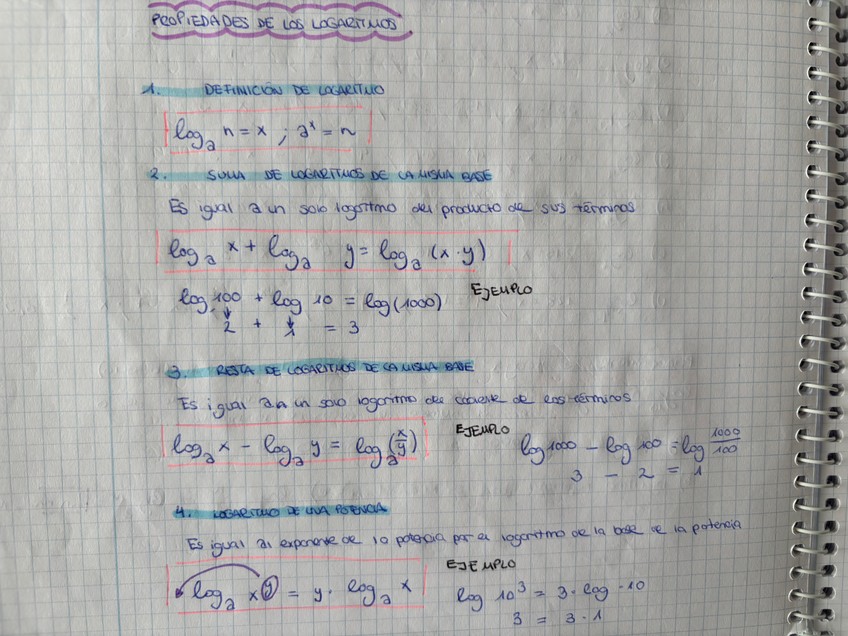 PROPIEDADES DE LOS LOGARITMOS
1. DEFINICIÓN DE LOGARITMO
logₐ n = x ; aˣ = n
2. SUMA DE LOGARITMOS DE LA MISMA BASE
Es igual a un solo logaritmo del producto de sus términos
logₐ x + logₐ y = logₐ (x · y)
log 100 + log 10 = log (1000) EJEMPLO
2 + 1 = 3
3. RESTA DE LOGARITMOS DE LA MISMA BASE
Es igual a un solo logaritmo del cociente de los términos
logₐ x - logₐ y = logₐ (x/y) EJEMPLO log 1000 - log 100 = log 1000/100
3 - 2 = 1
4. LOGARITMO DE UNA POTENCIA
Es igual al exponente de la potencia por el logaritmo de la base de la potencia
logₐ xʸ = y · logₐ x EJEMPLO log 10³ = 3 · log · 10
3 = 3 · 1